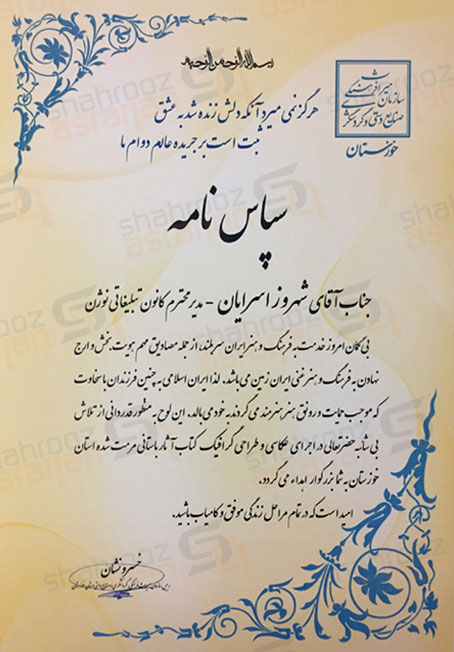 بسم الله الرحمن الرحیم
سازمان میراث فرهنگی
صنایع دستی و گردشگری
خوزستان
هرگز نمیرد آنکه دلش زنده شد به عشق
ثبت است بر جریده عالم دوام ما
سپاس نامه
جناب آقای شهروز اسرایان - مدیر محترم کانون تبلیغاتی نوژن
بی گمان امروز خدمت به فرهنگ و هنر ایران سربلند، از جمله مصادیق مهم هویت بخش و ارج
نهادن به فرهنگ و هنر غنی ایران زمین می باشد، لذا ایران اسلامی به چنین فرزندان با سخاوت
که موجب حمایت و رونق هنر هنرمند می گردند به خود می بالد. این لوح به منظور قدردانی از تلاش
بی شائبه حضرتعالی در اجرای عکاسی و طراحی گرافیک کتاب آثار باستانی مرمت شده استان
خوزستان به شما بزرگوار اهداء می گردد.
امید است که در تمام مراحل زندگی موفق و کامیاب باشید.
خسرو نشان
shahrooz
asraian